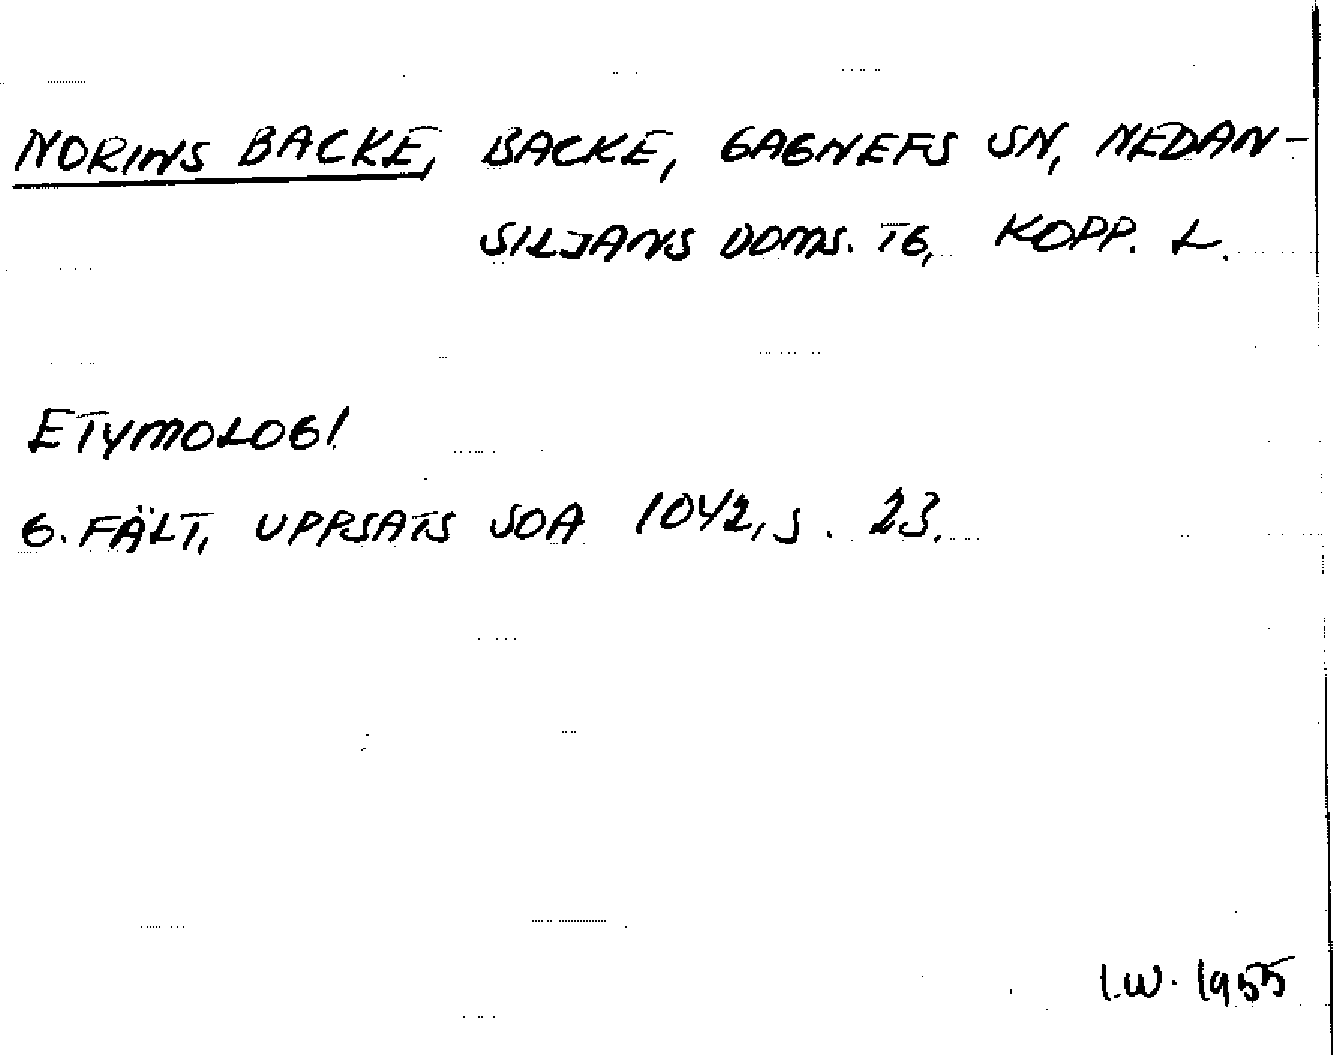 NORINS BACKE, BACKE, GAGNEFS SN, NEDAN-
SILJANS DOMS. TG, KOPP. L.
ETYMOLOGI
G. FÄLT, UPPSATS SOA 1042, S. 23.
I.W. 1955